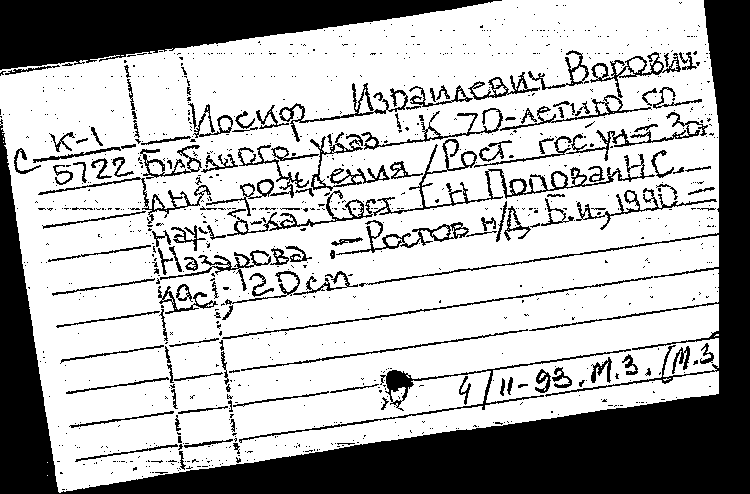 Иосиф Израилевич Ворович:
С К-1
5722 Библиогр. указ.: К 70-летию со
дня рождения / Рост. гос. ун-т Зон.
науч б-ка; Сост. Т.Н Попова и Н С.
Назарова. - Ростов н/Д: Б.и., 1990 -
49с; 20 см.
4/II-93. М.З. (М.З